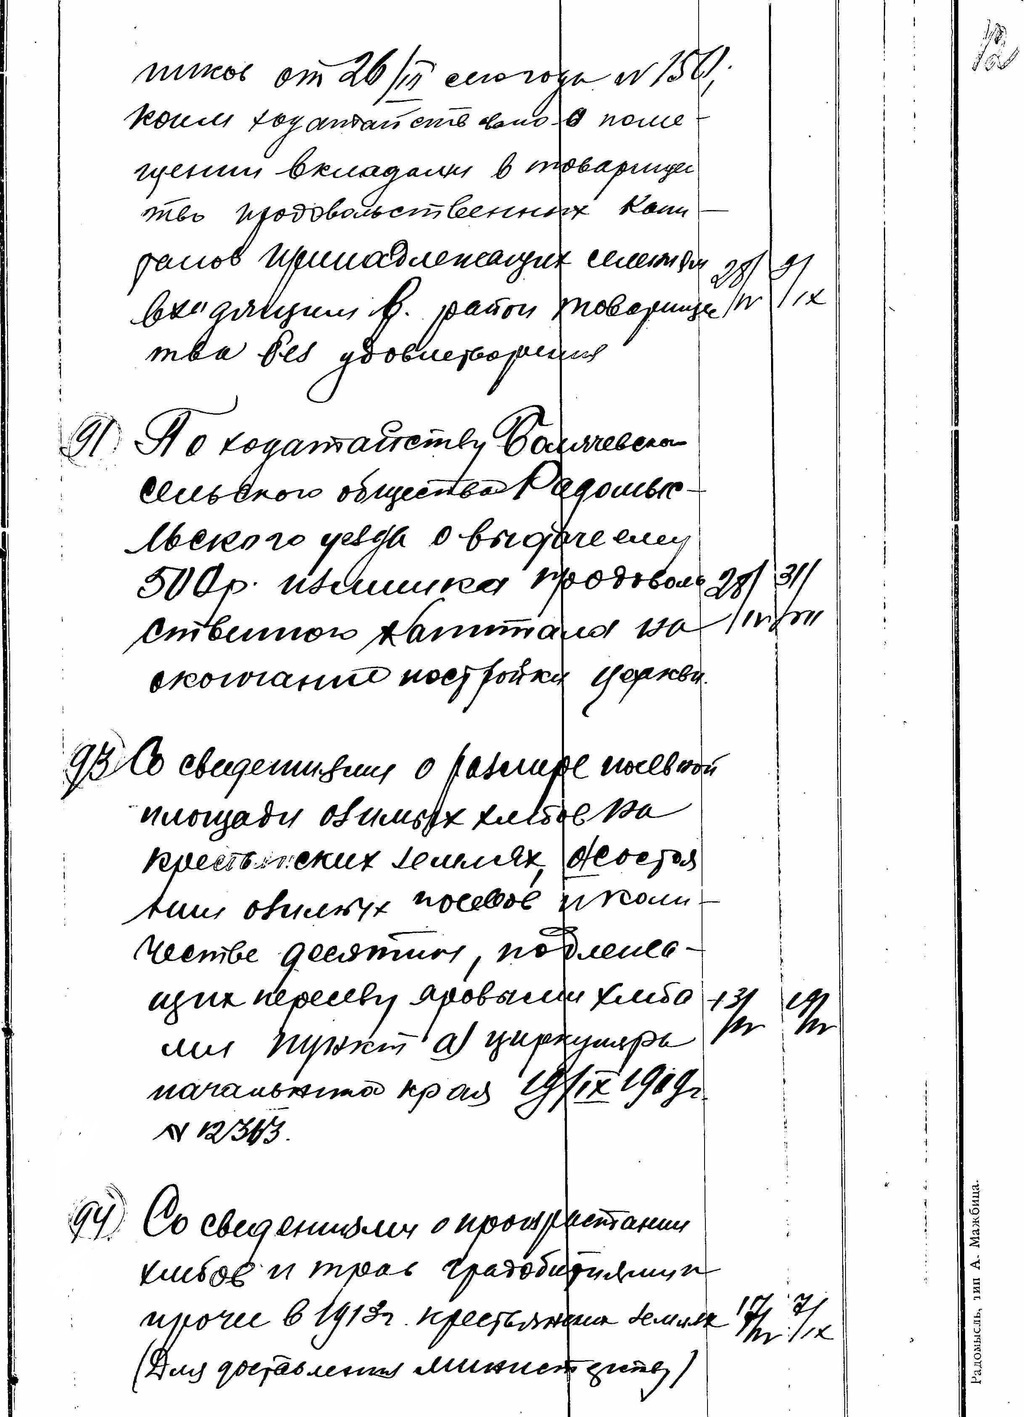 12
ников от 26/II сего года N 1501,
коим ходатайствовано о поме-
щении вкладами в товарищес
тво продовольственных капи-
талов принадлежащих селениям
входящим в район товарищес 28/IV 9/IX
тва без удовлетворения
91) По ходатайству Болячевско
сельского общества Радомыс-
льского уезда о выдаче ему
500 р. излишка продоволь 28/IV 31/VII
ственного капитала на
окончание постройки церкви.
93) Со сведениями о размере посевной
площади озимых хлебов на
крестьянских землях, о состоя
нии озимых посевов и коли-
честве десятин, подлежа-
щих пересеву яровыми хлеба 13/IV 19/IV
ми пункт а) циркуляра
начальника края 19/IX 1909 г.
N 12363.
94) Со сведениями о произрастании
хлебов и трав градобитиями и
проче в 1913 г. крестьянских землях 17/IV 7/IX
(Для доставления министерству)
Радомысль, тип А. Мажбица.